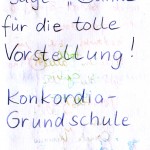 sage „
für die tolle
Vorstellung!
Konkordia-
Grundschule